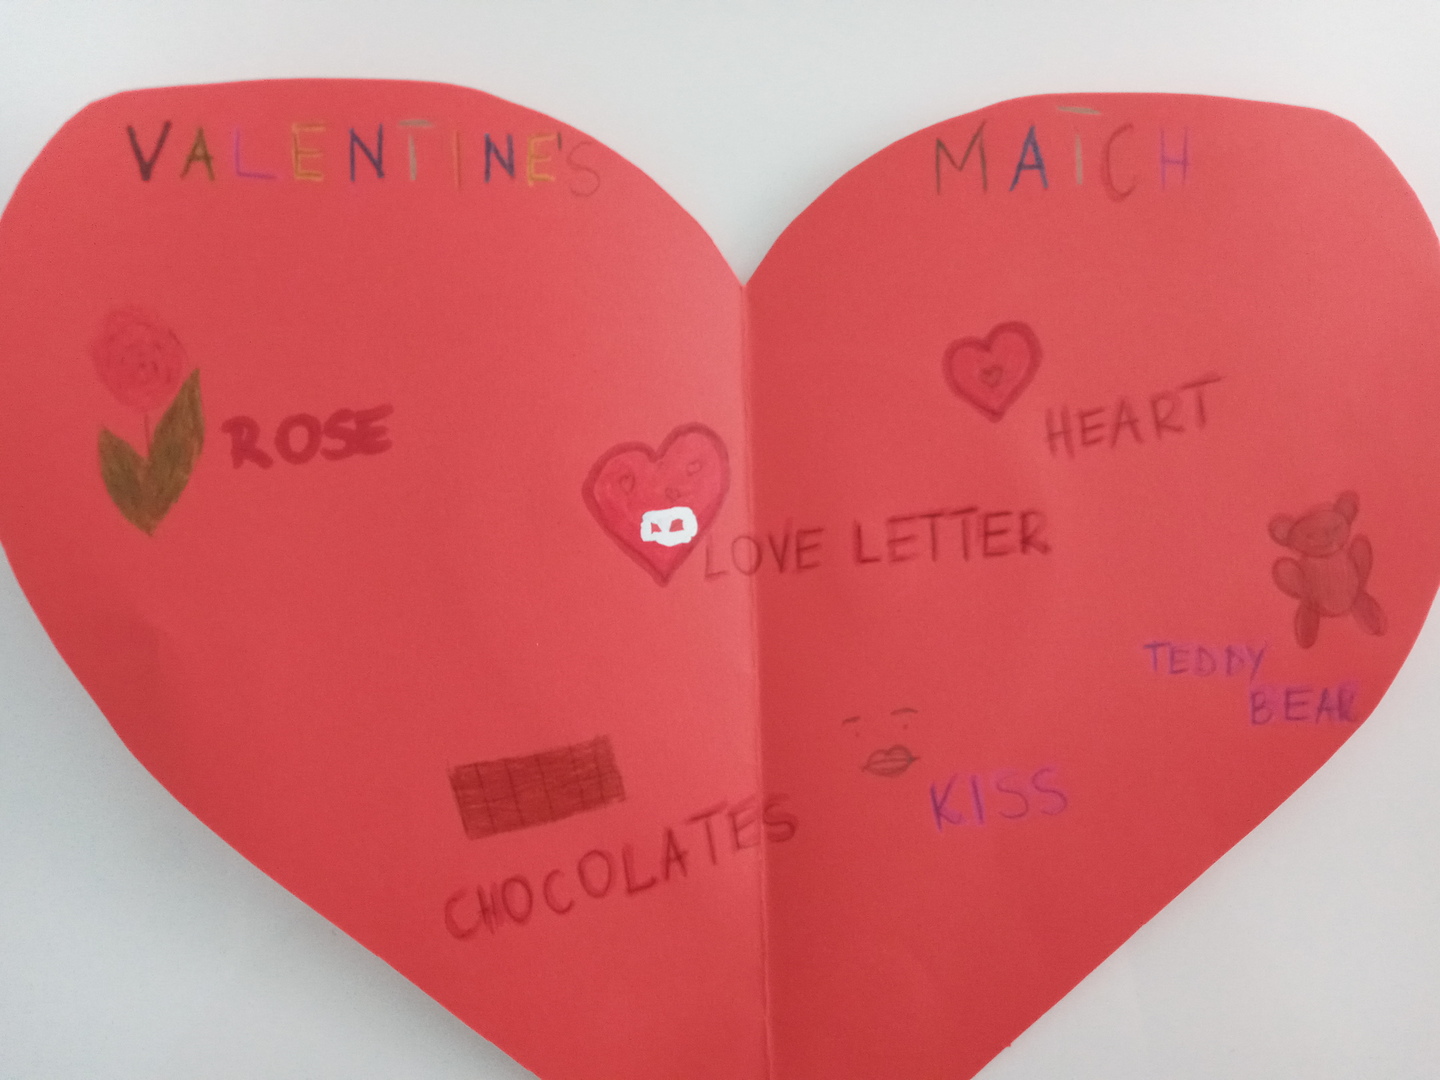 VALENTINE'S MATCH
ROSE
HEART
LOVE LETTER
TEDDY
BEAR
KISS
CHOCOLATES